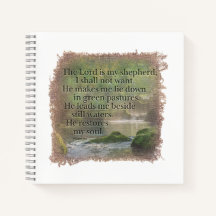 The Lord is my shepherd;
I shall not want.
He makes me lie down
in green pastures.
He leads me beside
still waters.
He restores
my soul.